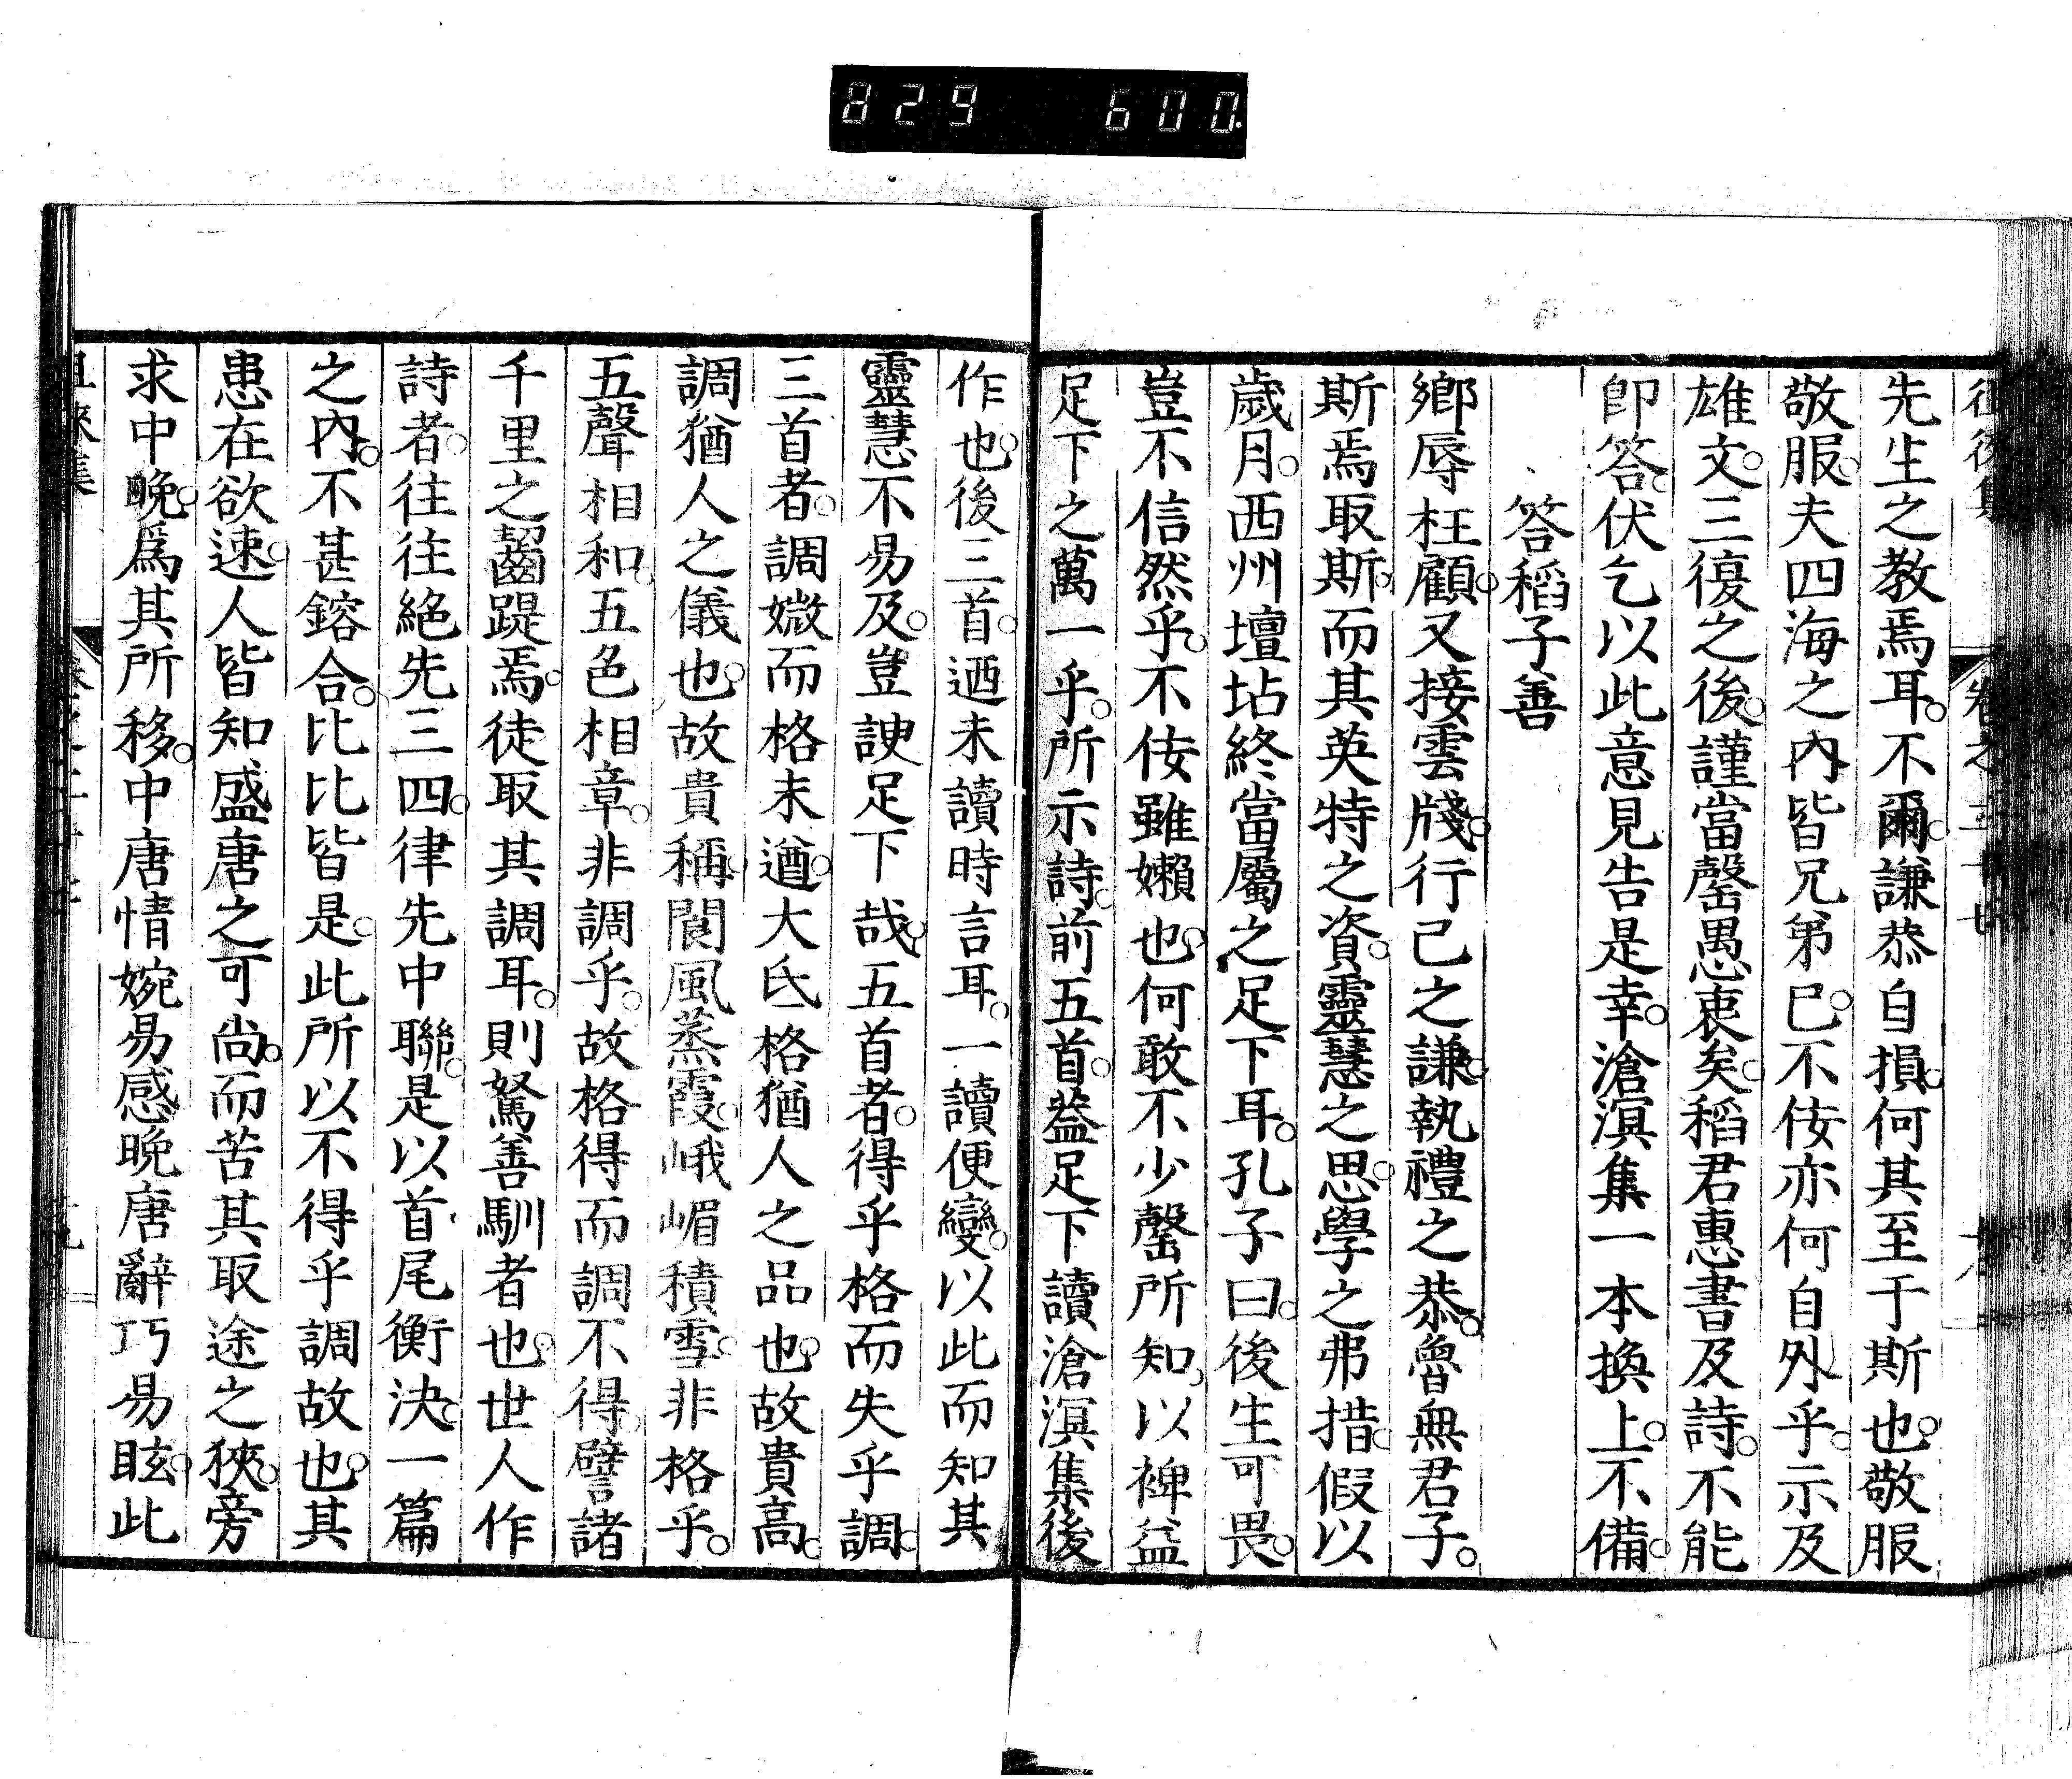 829 600.
先生之教焉耳。不爾。謙恭自損。何其至于斯也。敬服
敬服。夫四海之內皆兄弟已。不佞亦何自外乎。示及
雄文。三復之後。謹當罄愚衷矣。稻君惠書及詩。不能
卽答。伏乞以此意見告是幸。滄溟集一本換上。不備。
答稻子善
鄉辱枉顧。又接雲牋。行己之謙。執禮之恭。魯無君子。
斯焉取斯。而其英特之資。靈慧之思。學之弗措。假以
歲月。西州壇坫終當屬之足下耳。孔子曰。後生可畏。
豈不信然乎。不佞雖嬾也。何敢不少罄所知。以裨益
足下之萬一乎。所示詩。前五首。葢足下讀滄溟集後
作也。後三首。迺未讀時言耳。一讀便變。以此而知其
靈慧不易及。豈諛足下哉。五首者。得乎格而失乎調。
三首者。調媺而格末遒。大氐格猶人之品也。故貴高。
調猶人之儀也。故貴稱。閬風蒸霞。峨嵋積雪。非格乎。
五聲相和。五色相章。非調乎。故格得而調不得。譬諸
千里之齧踶焉。徒取其調耳。則駑善馴者也。世人作
詩者。往往絕先三四。律先中聯。是以首尾衡決。一篇
之內。不甚鎔合。比比皆是。此所以不得乎調故也。其
患在欲速。人皆知盛唐之可尚。而苦其取途之狹。旁
求中晚。爲其所移。中唐情婉易感。晚唐辭巧易眩。此